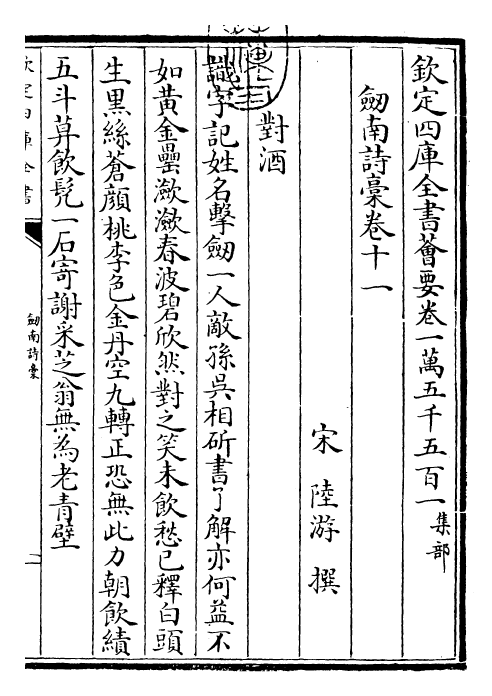 欽定四庫全書薈要卷一萬五千五百一集部
劒南詩稾卷十一
宋陸游撰
對酒
識字記姓名擊劒一人敵孫吳相斫書了解亦何益不
如黄金罍瀲瀲春波碧欣然對之笑未飲愁已釋白頭
生黒絲蒼顔桃李色金丹空九轉正恐無此力朝飲績
五斗莫飲髠一石寄謝采芝翁無為老青壁
欽定四庫全書
劒南詩稾